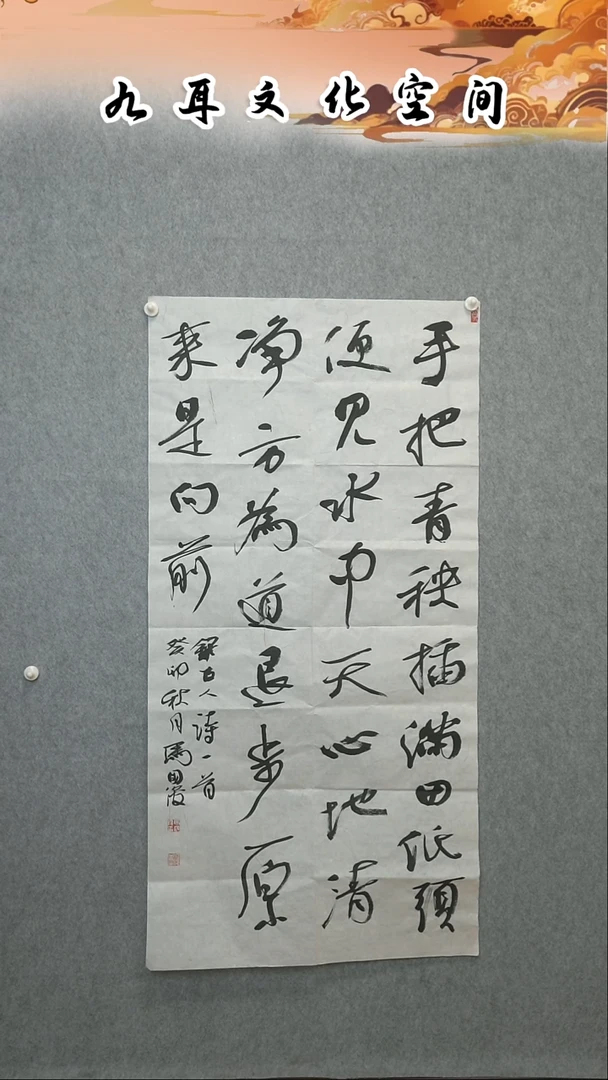 九耳文化空间
手把青秧插滿田低頭
便見水中天心地清
净方為道退步原
来是向前
錄古人詩一首
癸卯秋月馬